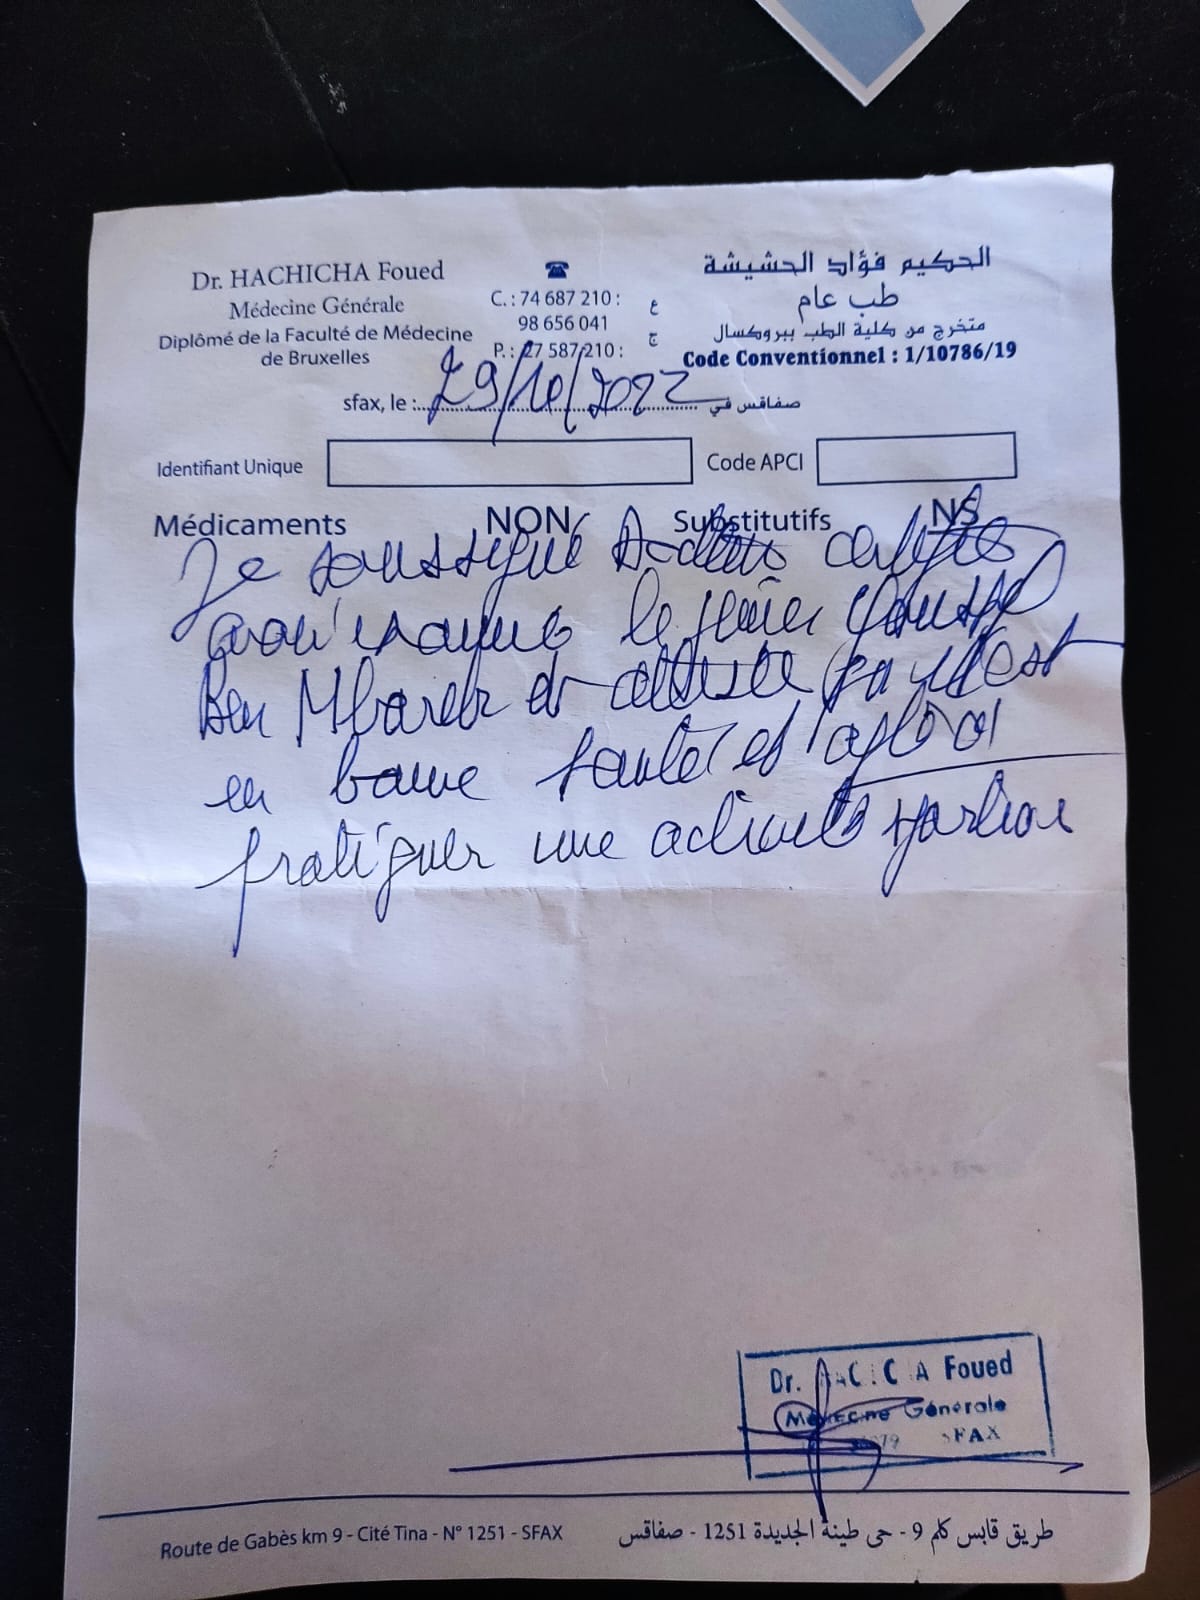 Dr. HACHICHA Foued
Médecine Générale
Diplômé de la Faculté de Médecine
de Bruxelles
C. : 74 687 210 : ع
98 656 041
P. : 27 587 210 : ج
الحكيم فؤاد الحشيشة
طب عام
متخرج من كلية الطب ببروكسال
Code Conventionnel : 1/10786/19
sfax, le : 29/10/2022 صفاقس في
Identifiant Unique Code APCI
Médicaments NON Substitutifs NS
Je soussigné certifie
avoir examiné le
Ben Mbarek et atteste qu'il est
en bonne santé et
pratiquer une activité
Dr. Foued
Médecine Générale
SFAX
Route de Gabès km 9 - Cité Tina - N° 1251 - SFAX
طريق قابس كلم 9 - حي طينة الجديدة 1251 - صفاقس